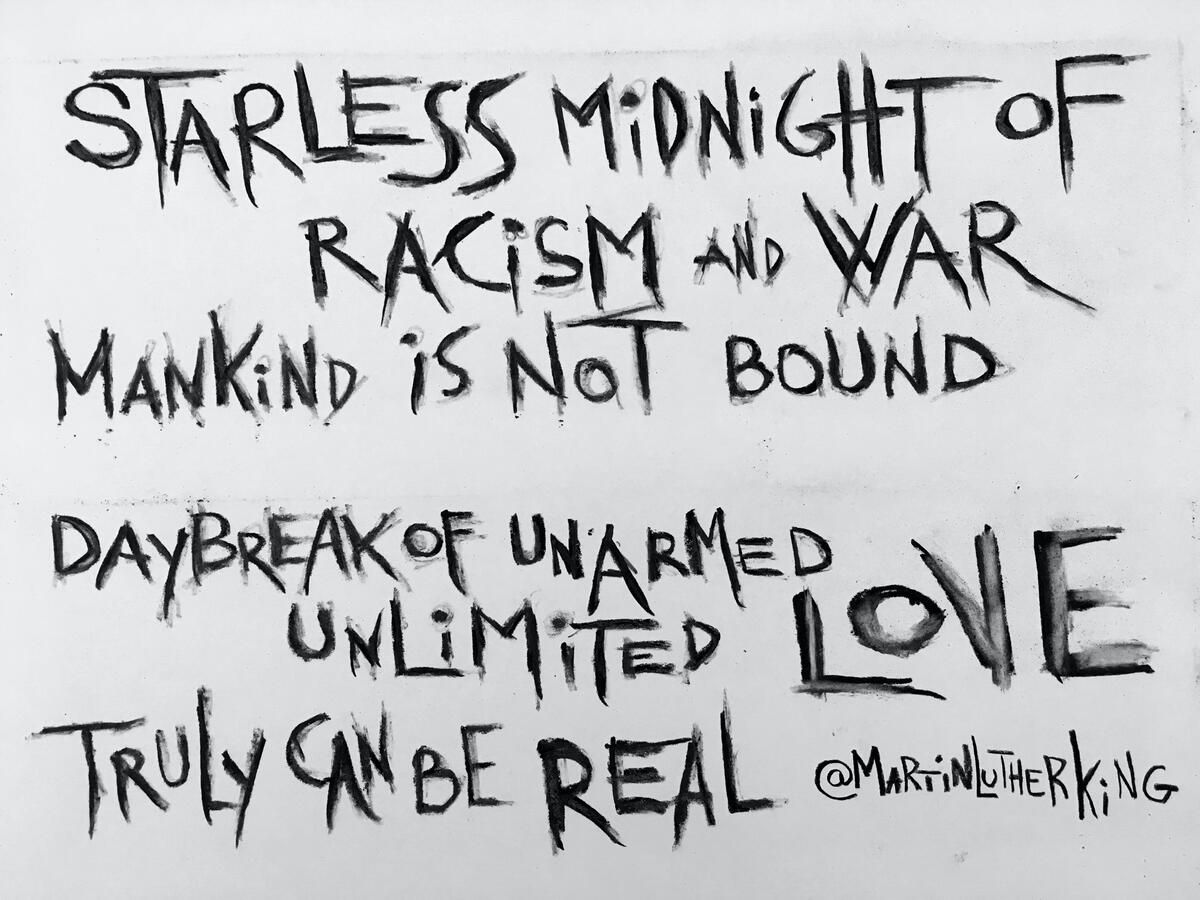 STARLESS MiDNiGHT OF
RACiSM AND WAR
MANKiND iS NOT BOUND
DAyBREAK OF UNARMED
UNLiMiTED LOVE
TRULy CAN BE REAL @MARTiNLUTHERKiNG